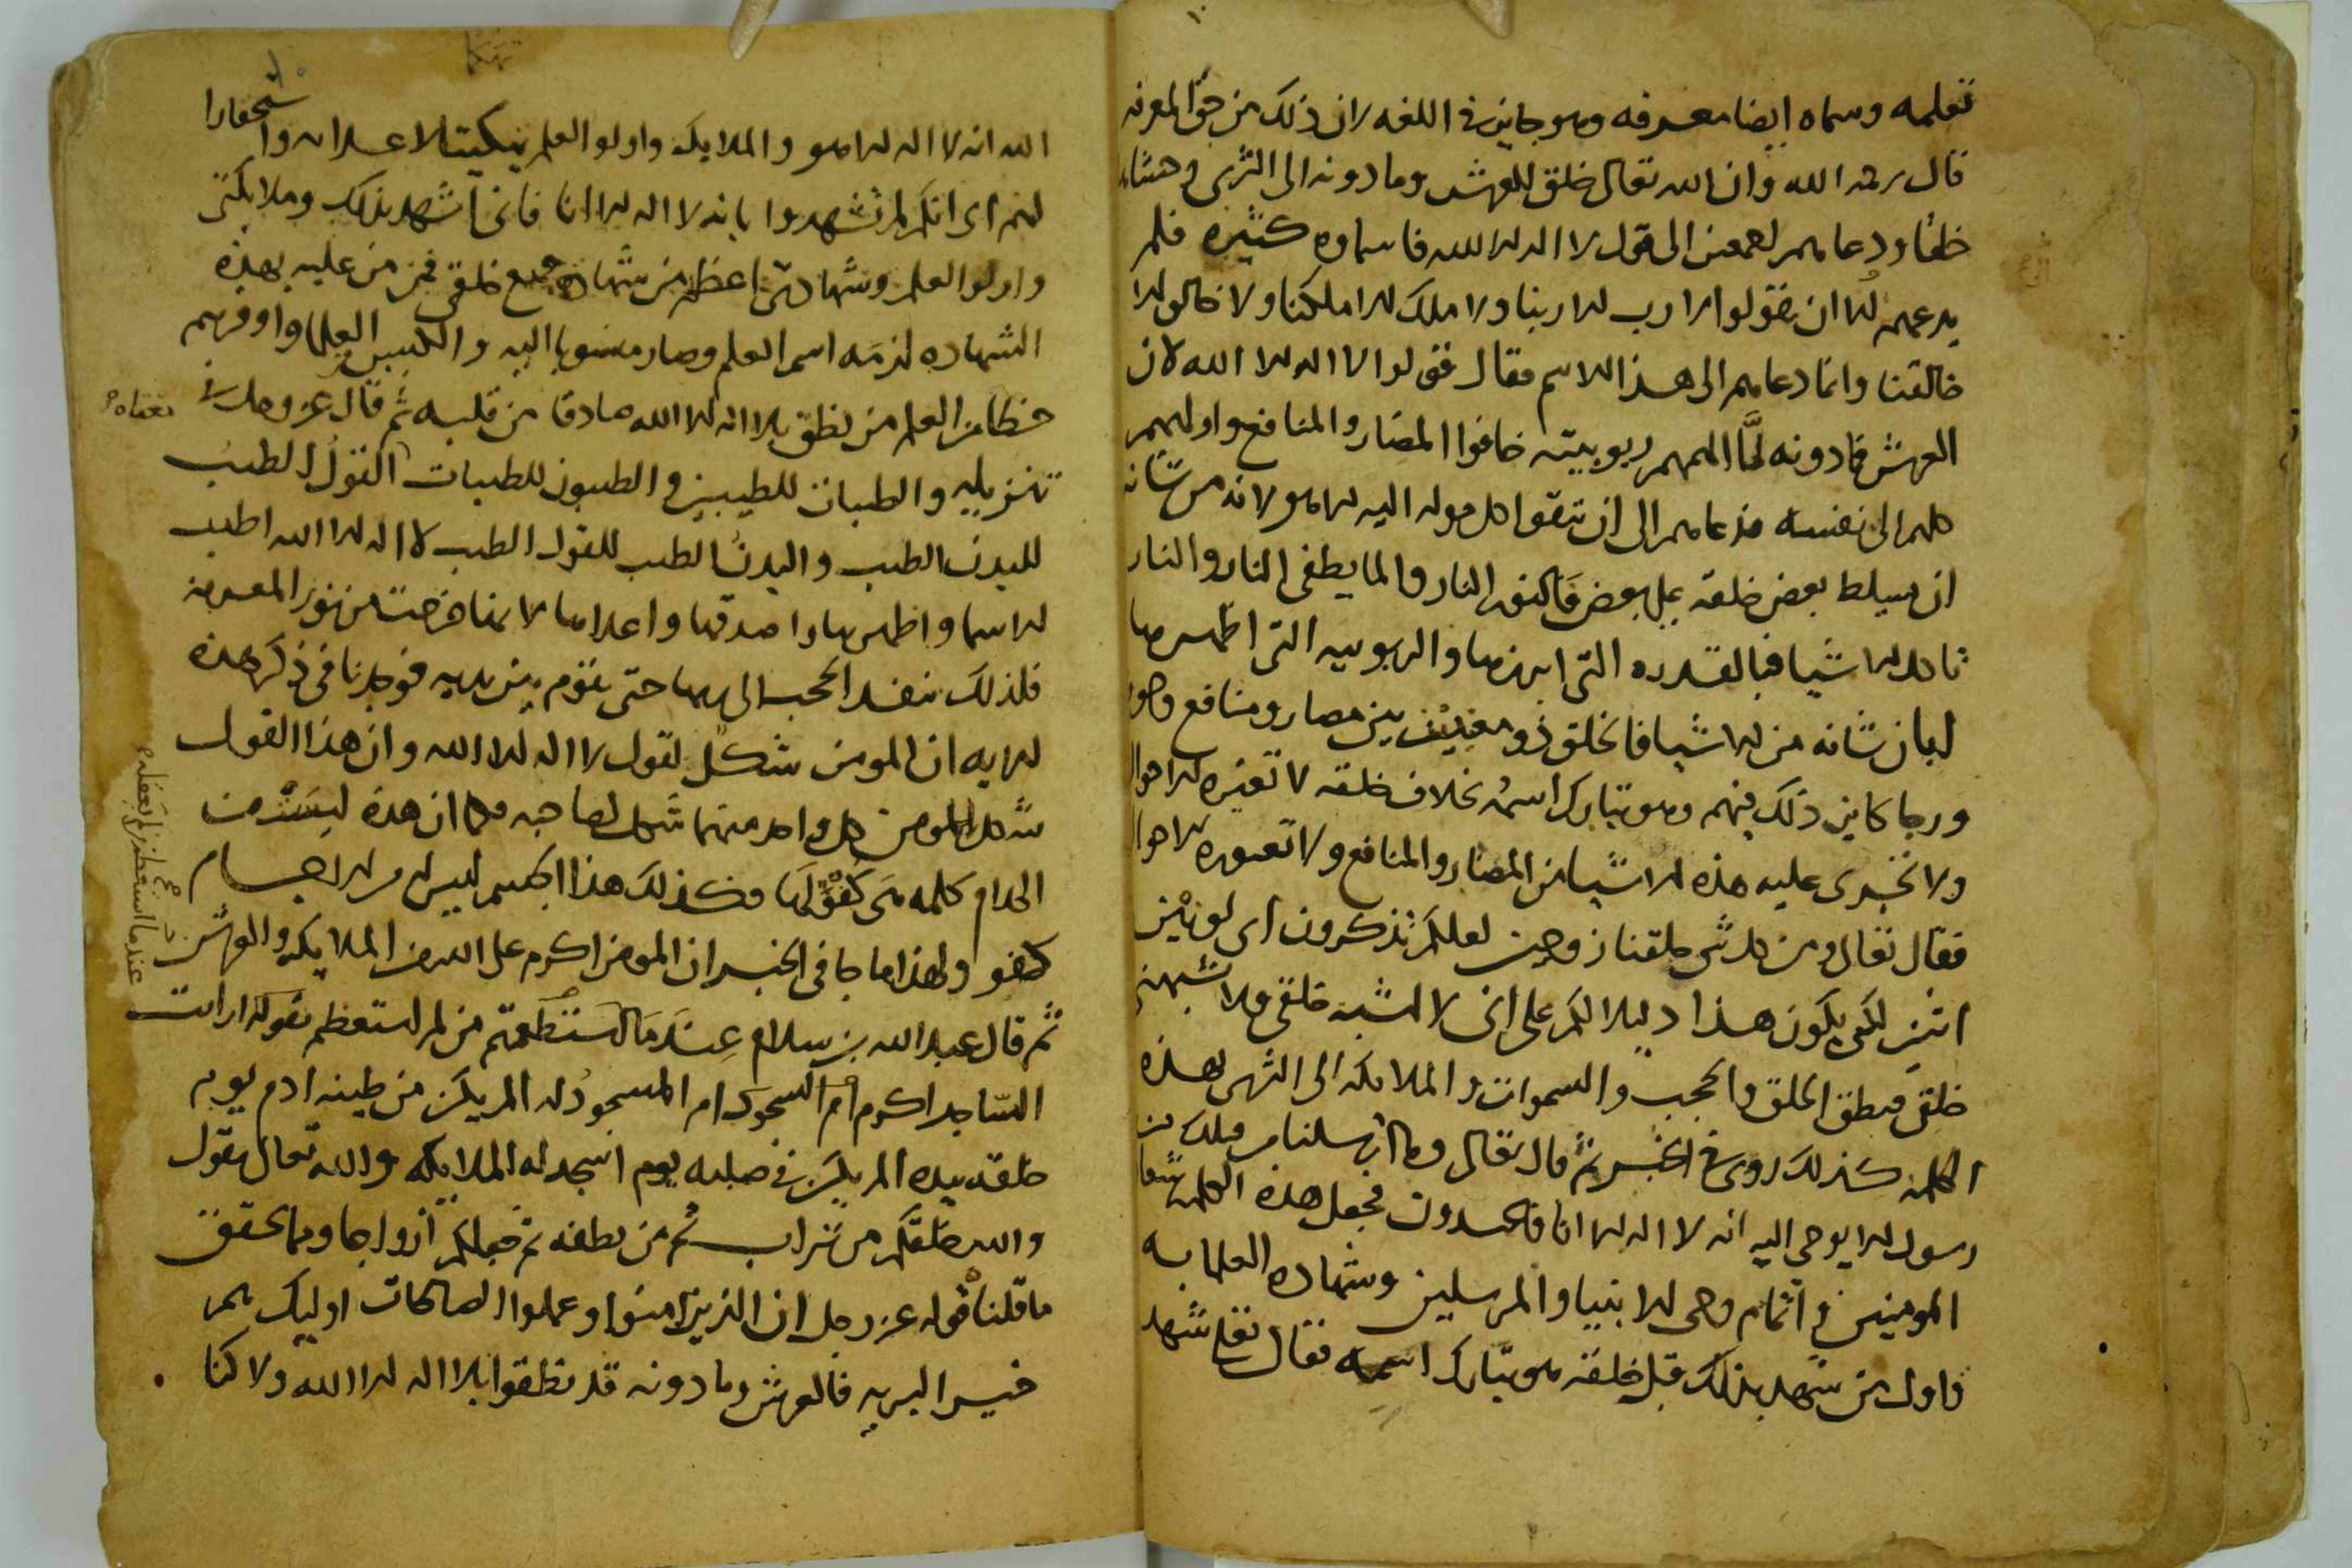 تعلمه وسماه ايضا معرفه وهو جايز في اللغه لان ذلك من حق المعرفه
قال رحمه الله وان الله تعالى خلق العرش وما دونه الى الثرى
خلقا ودعاهم اجمعين الى قول لا اله الا الله فاسماوه كثيره فلم
يدعهم الى ان يقولوا لا رب الا ربنا ولا ملك الا ملكنا ولا خالق الا
خالقنا وانما دعاهم الى هذا الاسم فقال قولوا لا اله الا الله لان
العرش فما دونه لما الهمهم ربوبيته خافوا المضار والمنافع
كلهم الى نفسه فدعاهم الى ان يتقوا كل موله اليه الا هو لانه من شانه
ان يسلط بعض خلقه على بعض النار والما يطفي النار والنار
تاكل الاشيا فبالقدره التي ابرزها والربوبيه التي اظهرها
ابان شانه من الاشيا فالخلق ذو معنيين بين مضار ومنافع
ورجا كاين ذلك فيهم وهو تبارك اسمه بخلاف خلقه لا تغيره الاحوال
ولا تجري عليه هذه الاشيا من المضار والمنافع ولا تعتوره الاحوال
فقال تعالى ومن كل شي خلقنا زوجين لعلكم تذكرون اي لونين
اثنين لكي يكون هذا دليلا لكم على اني لا اشبه خلقي ولا يشبهني
خلقي فنطق الخلق والحجب والسموات والملايكه الى الثرى بهذه
الكلمه كذلك روي في الخبر ثم قال تعالى وما ارسلنا من قبلك من
رسول الا يوحى اليه انه لا اله الا انا فاعبدون فجعل هذه الكلمه شفا
المومنين واتمام وحي الانبيا والمرسلين وشهاده العلما به
واول من شهد بذلك قبل خلقه هو تبارك اسمه فقال تعالى شهد
الله انه لا اله الا هو والملايكه واولو العلم تبكيتا لاعدايه واستحقارا
لهم اي انكم لم تشهدوا بانه لا اله الا انا فاني اشهد بذلك وملايكتي
واولو العلم وشهادتي اعظم من شهاده جميع خلقي فمن من عليه بهذه
الشهاده لزمه اسم العلم وصار منسوبا اليه والعلما واوفرهم
حظا من العلم من نطق بلا اله الا الله صادقا من قلبه ثم قال عز وجل في
تنزيله والطيبات للطيبين والطيبون للطيبات القول الطيب
للبدن الطيب والبدن الطيب للقول الطيب لا اله الا الله اطيب
الاسما واطهرها واصدقها واعلاها لانها خرجت من نور المعرفه
فلذلك تنفد الحجب الى ربها حتى تقوم بين يديه فوجدنا في ذكر هذه
الايه ان المومن شكل لقول لا اله الا الله وان هذا القول
شكل للمومن كل واحد منهما شكل لصاحبه فكما ان هذه ليست من
الكلام كلمه هي كفو لها فكذلك هذا الجسم ليس له من الاجسام
كفو ولهذا ما جا في الخبر ان المومن اكرم على الله من الملايكه والعرش
ثم قال عبد الله بن سلام عندما استعظمتم من لم يستعظم بقوله ارايت
الساجد اكرم ام المسجود له الم يكن من طينه ادم يوم
خلقه بيده الم يكن في صلبه يوم اسجد له الملايكه والله تعالى يقول
والله خلقكم من تراب ثم من نطفه ثم جعلكم ازواجا ومما يحقق
ما قلنا قوله عز وجل ان الذين امنوا وعملوا الصالحات اوليك هم
خير البريه فالعرش وما دونه قد نطقوا بلا اله الا الله ولا كنا